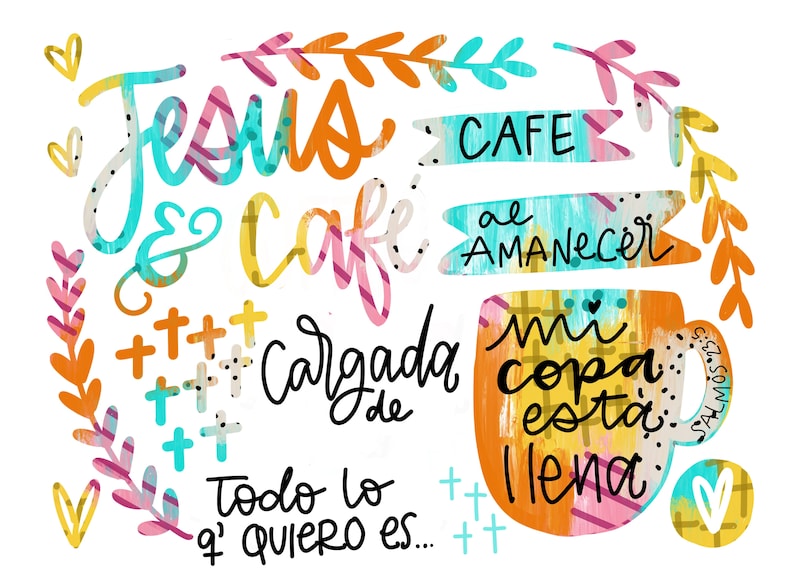 Jesus
& Café
CAFE
al
AMANECER
Cargada
de
mi
copa
está
llena
SALMOS 23:5
Todo lo
q' QUIERO ES...